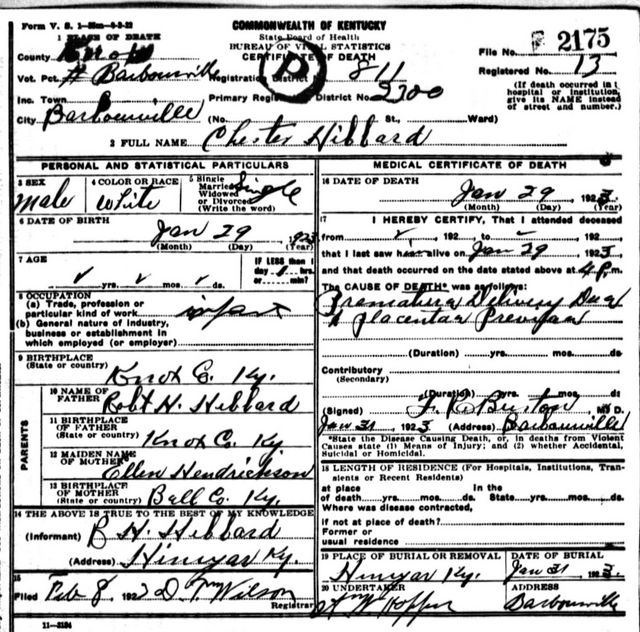 Form V. S. 1-50m-6-2-22
COMMONWEALTH OF KENTUCKY
1 PLACE OF DEATH
State Board of Health
BUREAU OF VITAL STATISTICS
CERTIFICATE OF DEATH
County Knox
File No. 2175
Vot. Pct. # Barbourville Registration District 811
Registered No. 13
Inc. Town Primary Registration District No. 2300
(If death occurred in a hospital or institution, give its NAME instead of street and number.)
City Barbourville (No. St., Ward)
2 FULL NAME Chester Hibbard
PERSONAL AND STATISTICAL PARTICULARS
3 SEX Male
4 COLOR OR RACE White
5 Single Married Widowed or Divorced (Write the word) Single
6 DATE OF BIRTH
Jan 29 1923
(Month) (Day) (Year)
7 AGE
yrs. mos. ds.
IF LESS than 1 day hrs. or min.?
8 OCCUPATION
(a) Trade, profession or particular kind of work infant
(b) General nature of industry, business or establishment in which employed (or employer)
9 BIRTHPLACE
(State or country) Knox Co. Ky.
PARENTS
10 NAME OF FATHER Robt H. Hibbard
11 BIRTHPLACE OF FATHER
(State or country) Knox Co. Ky
12 MAIDEN NAME OF MOTHER Ellen Hendrickson
13 BIRTHPLACE OF MOTHER
(State or country) Bell Co. Ky.
14 THE ABOVE IS TRUE TO THE BEST OF MY KNOWLEDGE
(Informant) R H. Hibbard
(Address) Hinyar Ky.
15
Filed Feb 8, 192 Wilson
Registrar
11-3184
MEDICAL CERTIFICATE OF DEATH
16 DATE OF DEATH
Jan 29 1923
(Month) (Day) (Year)
17 I HEREBY CERTIFY, That I attended deceased
from 192 to 192
that I last saw h alive on Jan 29 1923
and that death occurred on the date stated above at 4 P.m.
The CAUSE OF DEATH* was as follows:
Premature Delivery Due
Placenta Previa
(Duration) yrs. mos. ds.
Contributory
(Secondary)
(Duration) yrs. mos. ds.
(Signed) Burton M. D.
Jan 31 1923 (Address) Barbourville
*State the Disease Causing Death, or, in deaths from Violent Causes state (1) Means of Injury; and (2) whether Accidental, Suicidal or Homicidal.
18 LENGTH OF RESIDENCE (For Hospitals, Institutions, Transients or Recent Residents)
at place of death yrs. mos. ds. In the State yrs. mos. ds.
Where was disease contracted,
if not at place of death?
Former or usual residence
19 PLACE OF BURIAL OR REMOVAL
Hinyar Ky.
DATE OF BURIAL
Jan 31 1923
20 UNDERTAKER
Hopper
ADDRESS
Barbourville